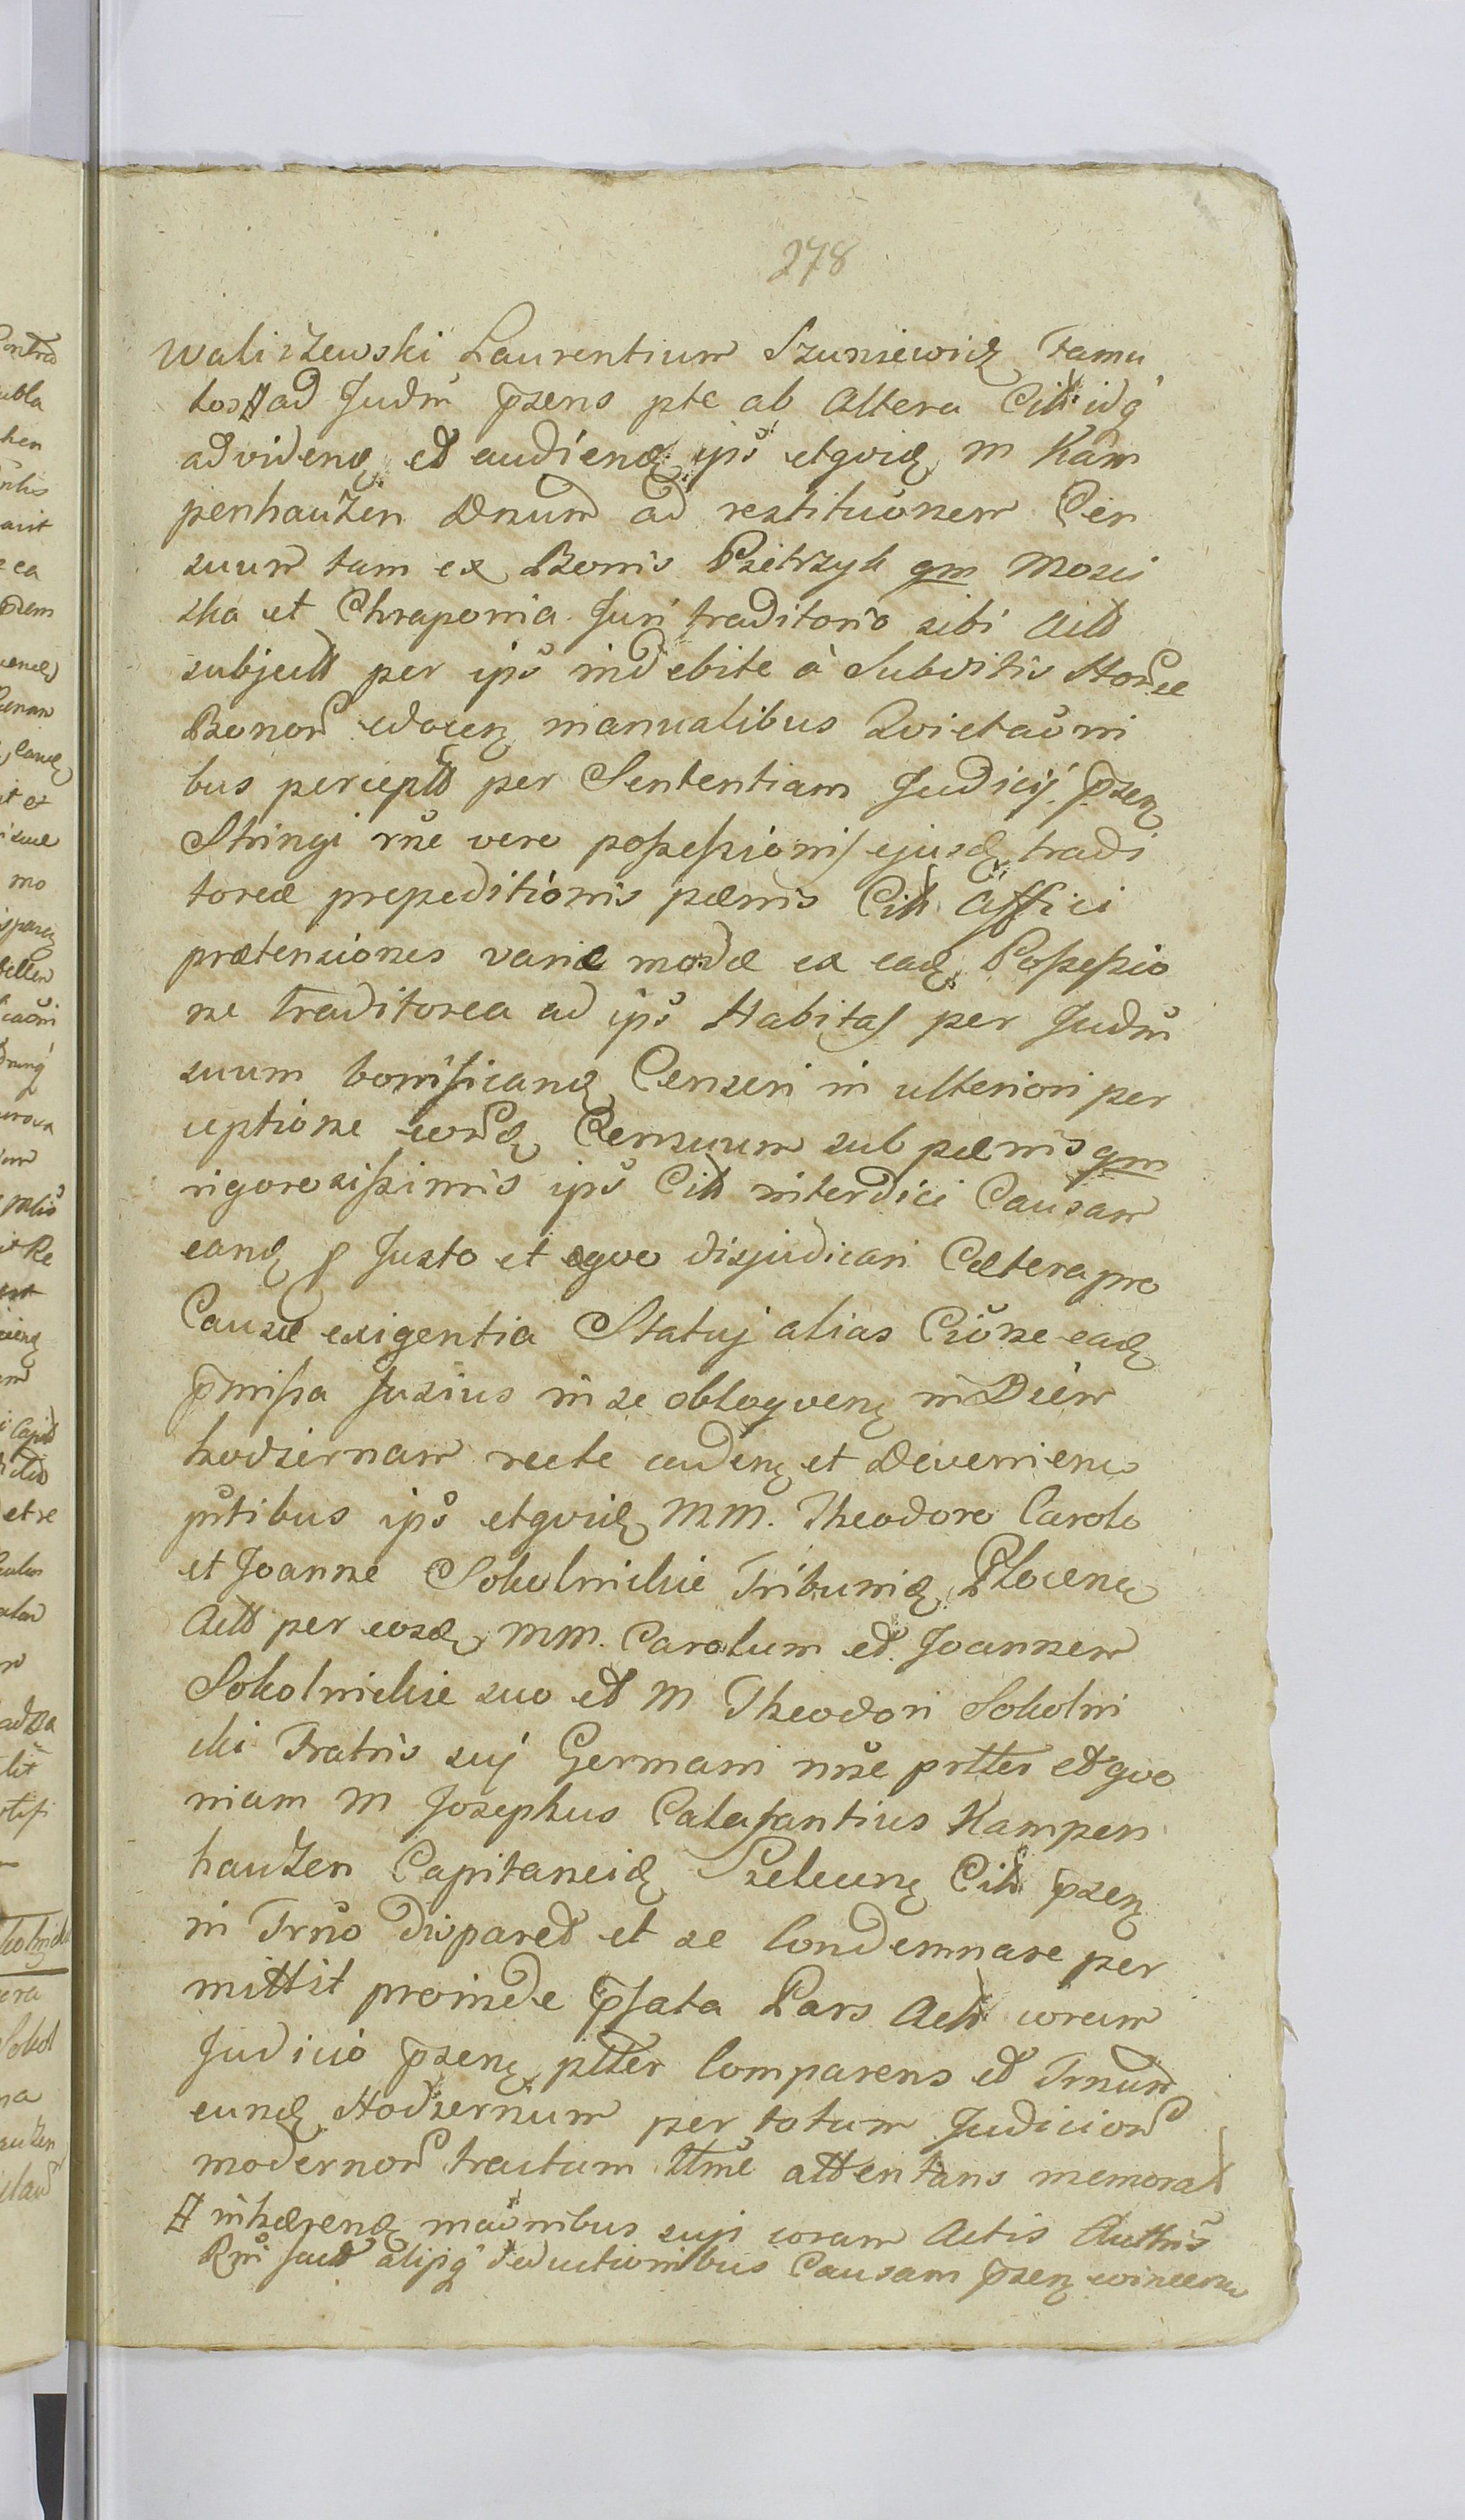 278
Waliszewski Laurentium Szuniewicz Famu
los # ad Judm pzens pte ab Altera Citt idq
ad videnq et audienq ips etgviq M Kam
penhauzen Dnum ad restitucionem Cen
suum tam ex Bonis Pietrzyk qm Mosci
ska et Chraponia Juri traditorio sibi Actt
subject per ips indebite à Subditis Horsce
Bonor edocen manualibus Qvietacioni
bus percept per Sententiam Judicij pzen
Stringi rne vero possessionis ejusd tradi
toreæ prepeditionis pænis Citt Affici
prætensiones variæ modæ ex ead Possessio
ne traditorea ad ips Habitas per Judm
suum bonificand Censeri in ulteriori per
ceptione eord Censuum sub pænis qm
rigorosissimis ips Citt interdici Causam
eand p Justo et æqvo disjudicari Cætera pro
Causæ exigentia Statuj alias Cione ead
pmissa fusius in se obloqven in Diem
hodiernam recte caden et Devenien
pntibus ips etgviq MM. Theodoro Carolo
et Joanne Sokolnickie Tribunid Plocen
Actt per eosd MM. Carolum et Joannem
Sokolnickie suo et M Theodori Sokolni
cki Fratris suj Germani nne pntter et qvo
niam M Josephus Calasantius Kampen
hauzen Capitaneid Citt pzen
in Trno disparet et se Condemnare per
mittit proinde pfata Pars Act coram
Judicio pzen ptter Comparens et Trnum
eund Hodiernum per totum Judicior
modernor tractum ttme attentans memorat
# inhæren maonibus suis coram Actis Authis
Rni fact alijsq deductionibus Causam pzen concern